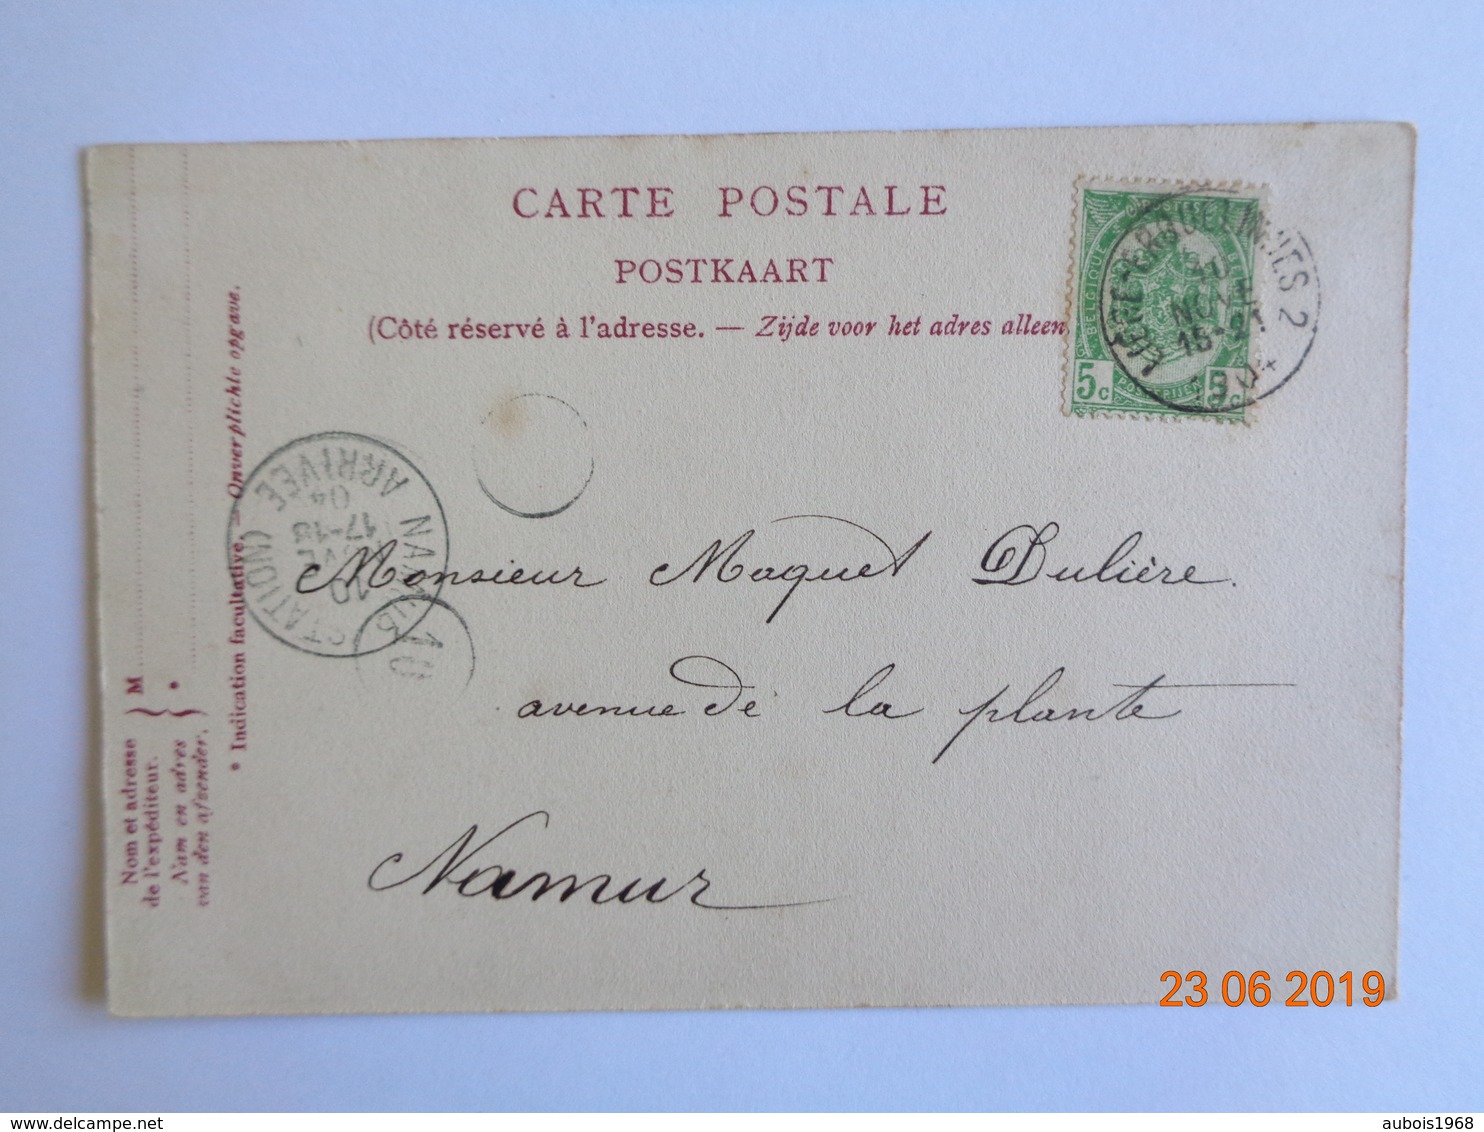 CARTE POSTALE
POSTKAART
(Côté réservé à l'adresse. — Zijde voor het adres alleen
BELGIQUE
5c
LIÉGE-ERQUELINNES 2
NOV
1904
NAMUR (STATION) ARRIVÉE
20
17-18
04
10
Monsieur Maquet Dulière.
avenue de la plante
Namur
Nom et adresse de l'expéditeur. } M
Nam en adres van den afzender. } *
* Indication facultative. — Onverplichte opgave.
23 06 2019
delcampe.net
aubois1968